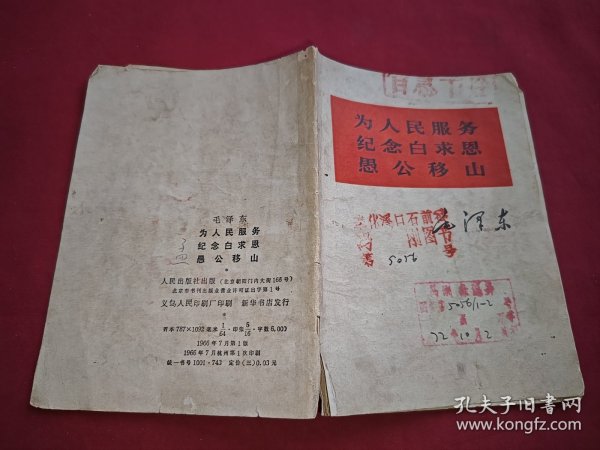 毛泽东
为人民服务
纪念白求恩
愚公移山
人民出版社出版（北京朝阳门内大街166号）
北京市书刊出版业营业许可证出字第1号
义乌人民印刷厂印刷 新华书店发行
开本787×1092毫米 1/64・印张5/16・字数6,000
1966年7月第1版
1966年7月杭州第1次印刷
统一书号1001・743 定价(三)0.03元
为人民服务
纪念白求恩
愚公移山
毛泽东
5056
5056/1-2
22 10 2
孔夫子旧书网
www.kongfz.com